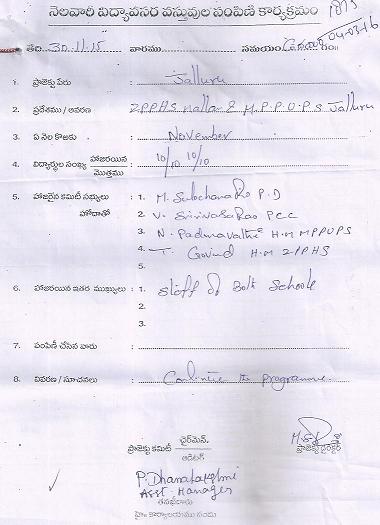 నెలవారీ విద్యావసర వస్తువుల పంపిణీ కార్యక్రమం
తేది 30.11.15 వారము సమయం గం॥
04-03-16
1. ప్రాజెక్టు పేరు : Jalluru
2. ప్రదేశము / ఆవరణ : ZPPHS Mallam & M.P.P.U.P.S Jalluru
3. ఏ నెల కొఱకు : November
4. విద్యార్థుల సంఖ్య హాజరయిన / మొత్తము : 10/10 10/10
5. హాజరైన కమిటీ సభ్యులు : 1. M. Sulochana Rao P.D
హోదాతో 2. V. Srinivasa Rao PCC
3. N. Padmavathi H.M MPPUPS
4. T. Govind H.M ZPPHS
5.
6. హాజరయిన ఇతర ముఖ్యులు : 1. Staff of Both Schools
2.
3.
7. పంపిణీ చేసిన వారు :
8. వివరణ / సూచనలు : Continue the programme.
ప్రాజెక్టు కమిటీ చైర్‌మెన్.
ఆడిటర్
ప్రాజెక్టు డైరెక్టర్
P. Dhanalakshmi
Asst. Manager
తనిఖీదారు
హైం కార్యాలయము నందు